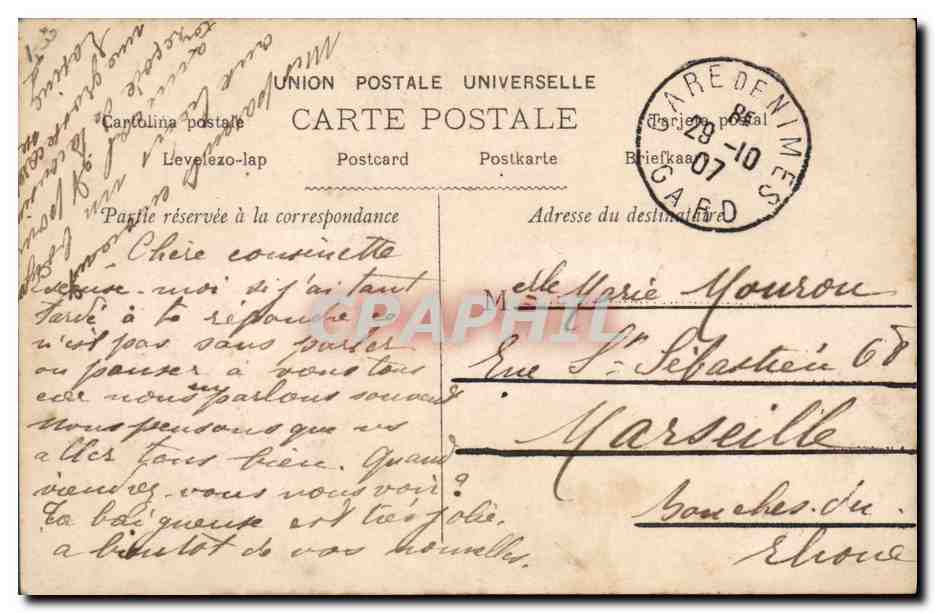 UNION POSTALE UNIVERSELLE
CARTE POSTALE
Cartolina postale
Tarjeta postal
Levelezo-lap
Postcard
Postkarte
Briefkaart
Partie réservée à la correspondance
Adresse du destinataire
GARE DE NIMES
8E
29-10
07
GARD
Chère cousinette
excuse-moi si j'ai tant
tardé à te répondre ce
n'est pas sans parler
ou penser à vous tous
car nous en parlons souvent
nous pensons que vs
allez tous bien. Quand
viendrez-vous nous voir?
Ta baigneuse est très jolie.
a bientot de vos nouvelles.
Melle Marie Mouron
Rue St Sébastien 68
Marseille
Bouches-du-
Rhone
CPAPHIL